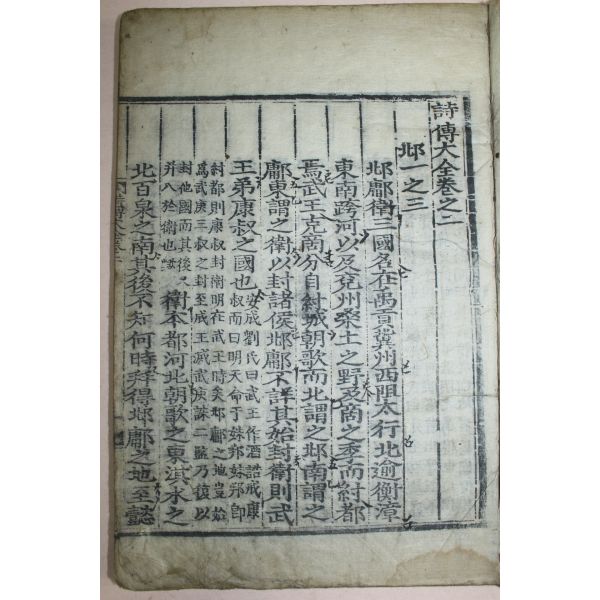 詩傳大全卷之二
邶一之三
邶鄘衛三國名在禹貢冀州西阻太行北逾衡漳
東南跨河以及兗州桑土之野及商之季而紂都
焉武王克商分自紂城朝歌而北謂之邶南謂之
鄘東謂之衛以封諸侯邶鄘不詳其始封衛則武
王弟康叔之國也安成劉氏曰武王作酒誥戒康
叔而曰明大命于妹邦妹邦卽
紂都則康叔封衛明在武王時矣邶鄘之地豈始
爲武庚三叔之封至成王滅武庚誅二監乃復以
封他國而其後
幷入於衛也
衛本都河北朝歌之東淇水之
北百泉之南其後不知何時幷得邶鄘之地至懿